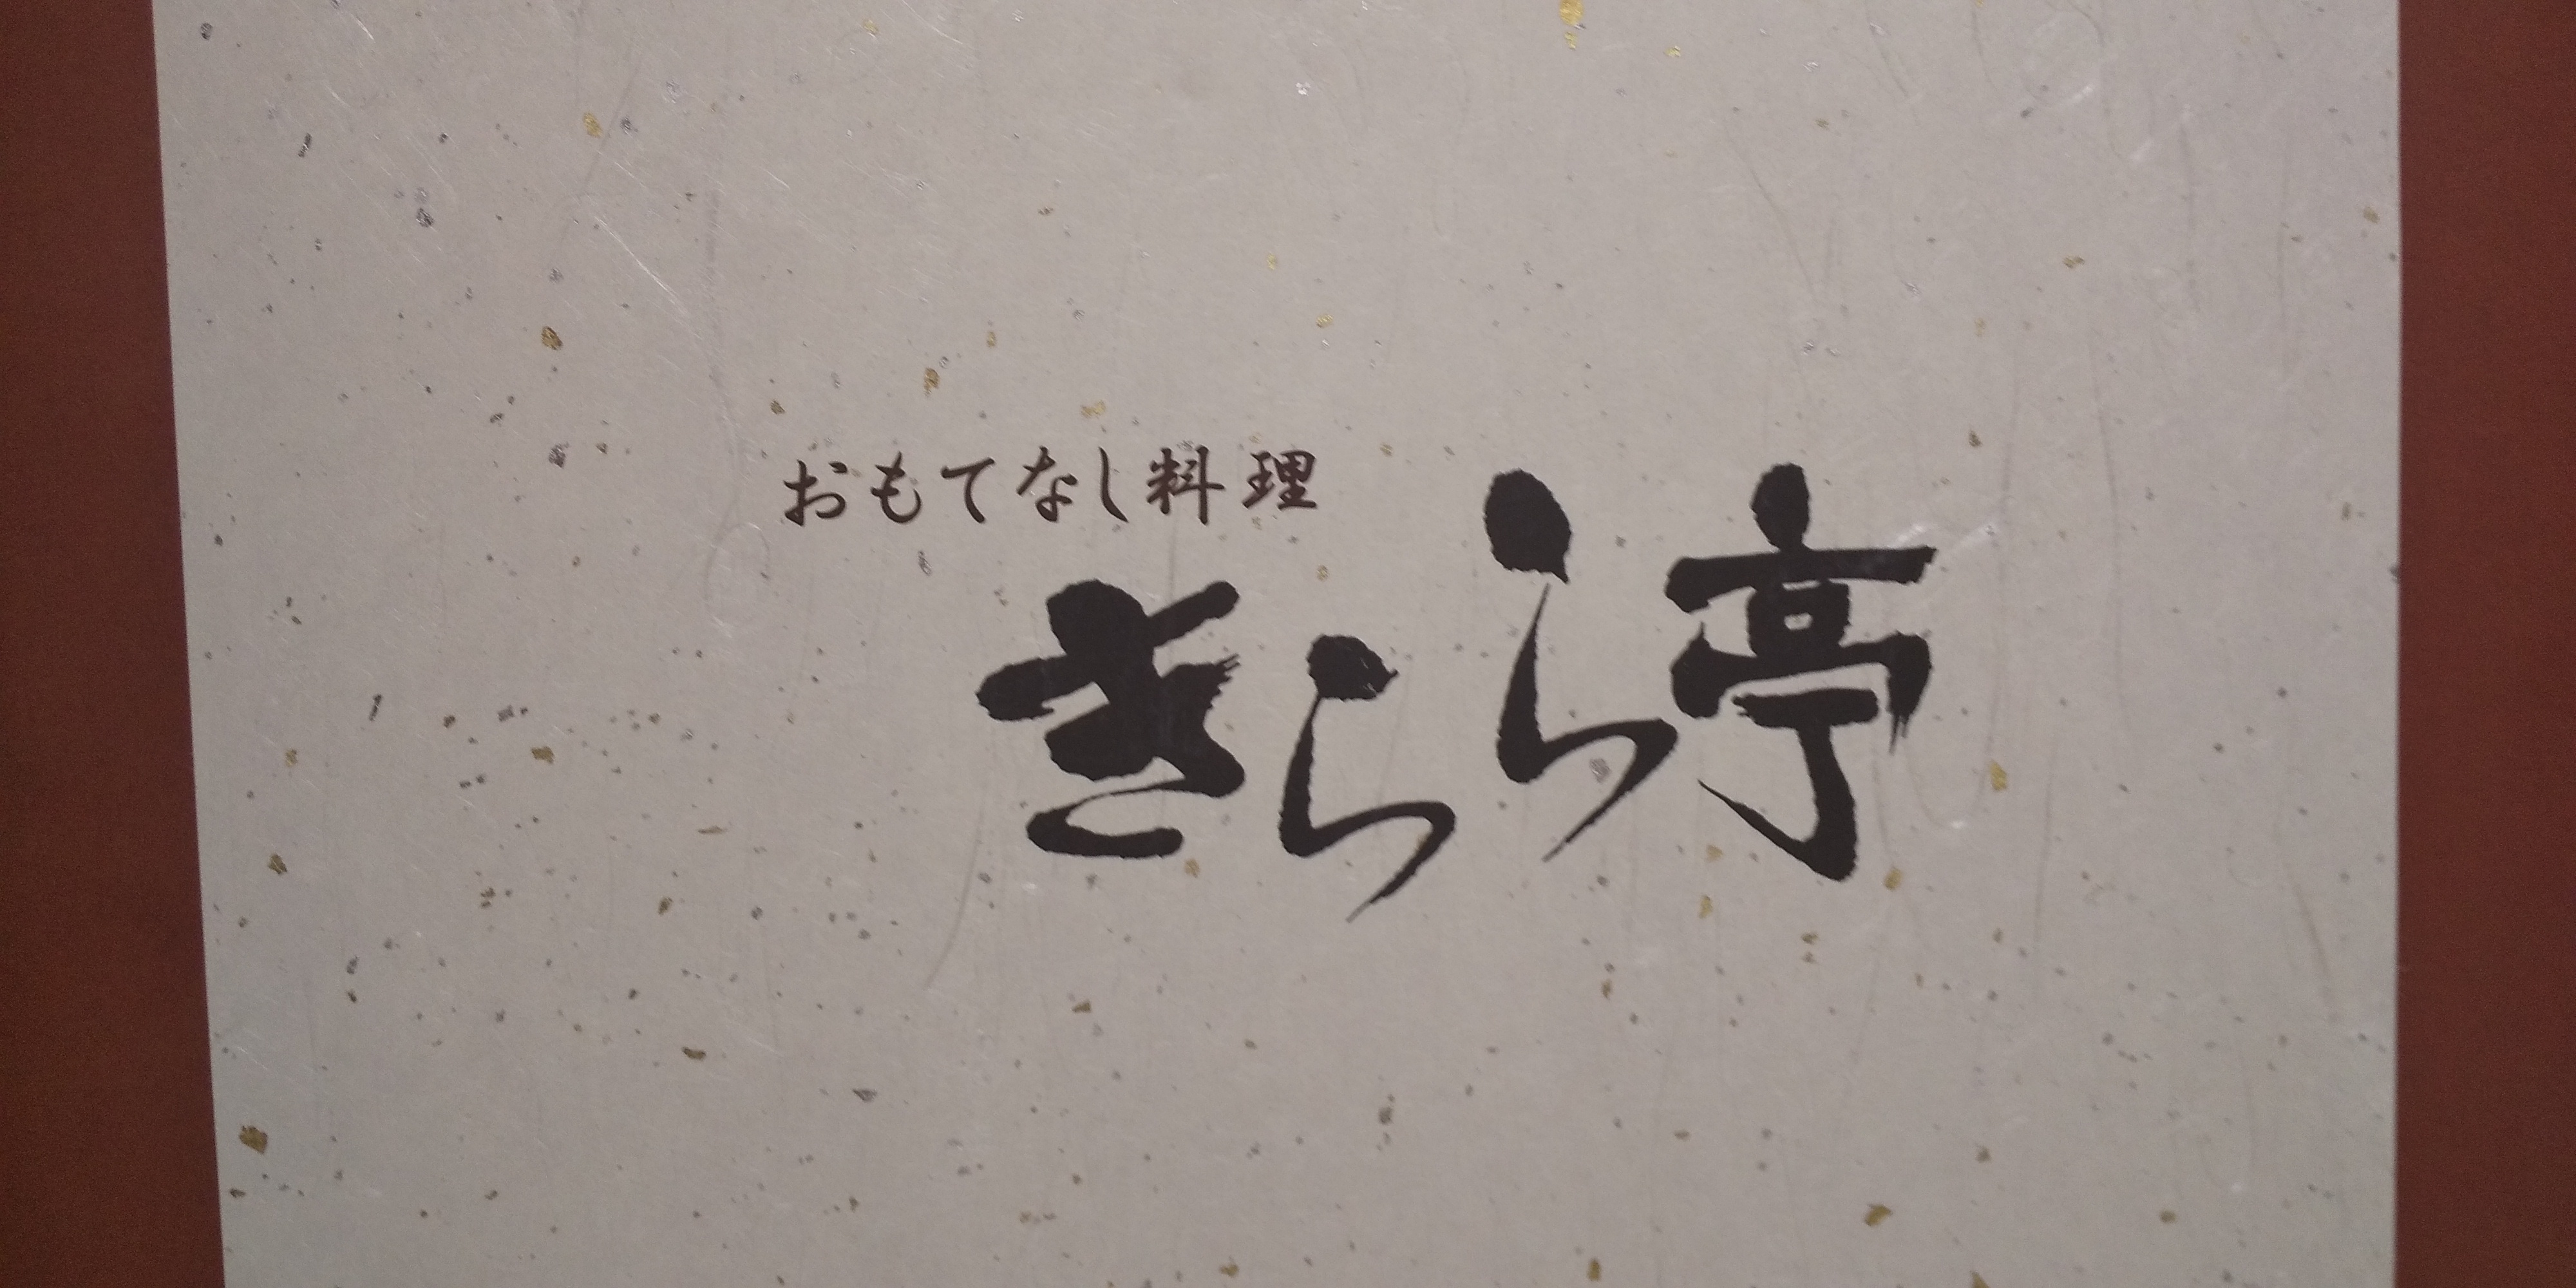 おもてなし料理
きらら亭